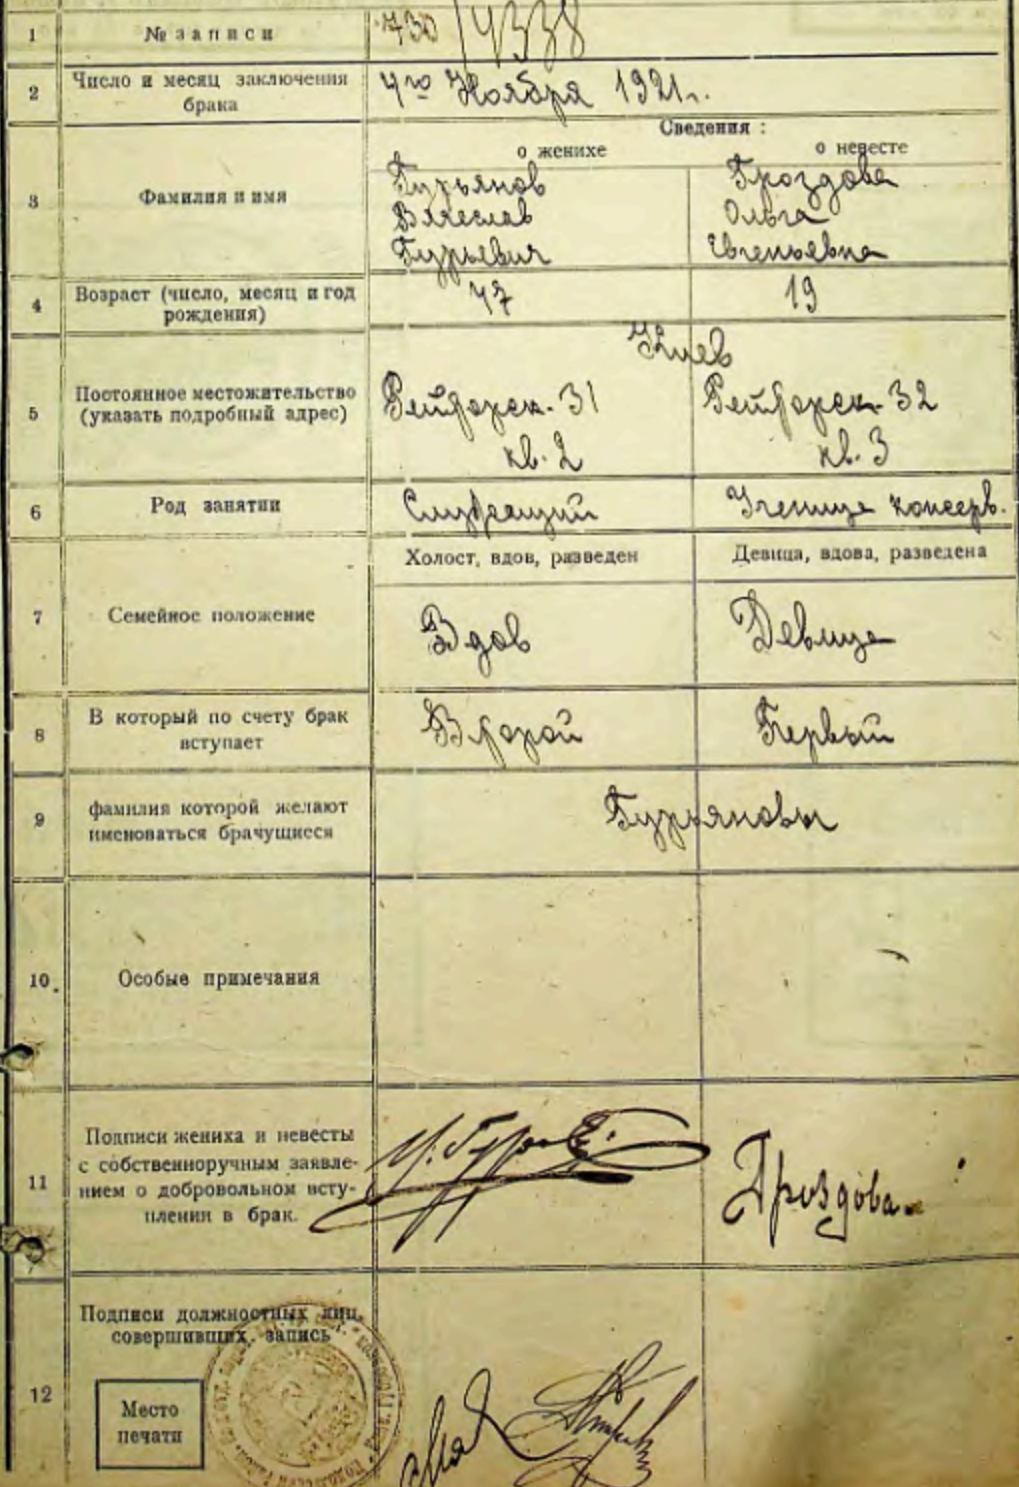 1 № записи 730/4338
2 Число и месяц заключения
брака
4го Ноября 1921г.
Сведения :
о женихе о невесте
3 Фамилия и имя
Гурьянов
Вячеслав
Гурьевич
Гроздова
Ольга
Евгеньевна
4 Возраст (число, месяц и год
рождения)
47 19
Киев
5 Постоянное местожительство
(указать подробный адрес)
Рейторск. 31
кв. 2
Рейторск. 32
кв. 3
6 Род занятии Служащий Ученица консерв.
Холост, вдов, разведен Девица, вдова, разведена
7 Семейное положение Вдов Девица
8 В который по счету брак
вступает
Второй Первый
9 фамилия которой желают
именоваться брачущиеся
Гурьяновы
10. Особые примечания
11 Подписи жениха и невесты
с собственноручным заявле-
нием о добровольном всту-
плении в брак.
Гроздова.
12 Подписи должностных лиц,
совершивших запись
Место
печати